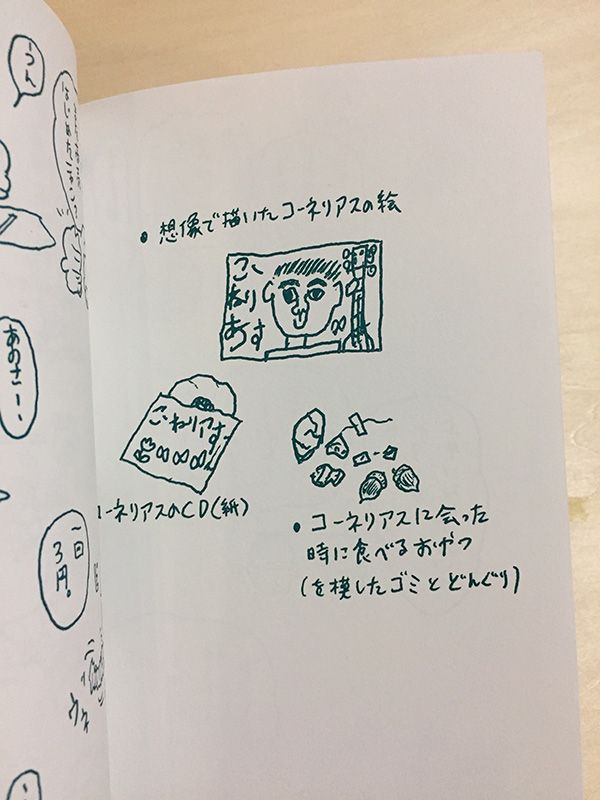 ● 想像で描いたコーネリアスの絵
こーねりあす
こーねりアす
コーネリアスのCD(紙)
● コーネリアスに会った
時に食べるおやつ
(を模したゴミとどんぐり)
うん
あのさー、
一回
3円。